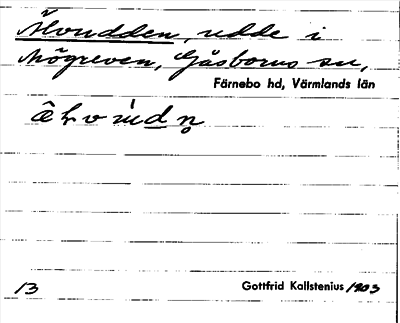 Älvudden, udde i
Mögreven, Gåsborns sn,
Färnebo hd, Värmlands län
13 Gottfrid Kallstenius 1903